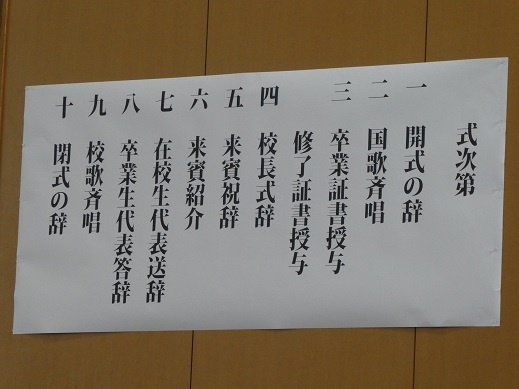 式次第
一 開式の辞
二 国歌斉唱
三 卒業証書授与
修了証書授与
四 校長式辞
五 来賓祝辞
六 来賓紹介
七 在校生代表送辞
八 卒業生代表答辞
九 校歌斉唱
十 閉式の辞